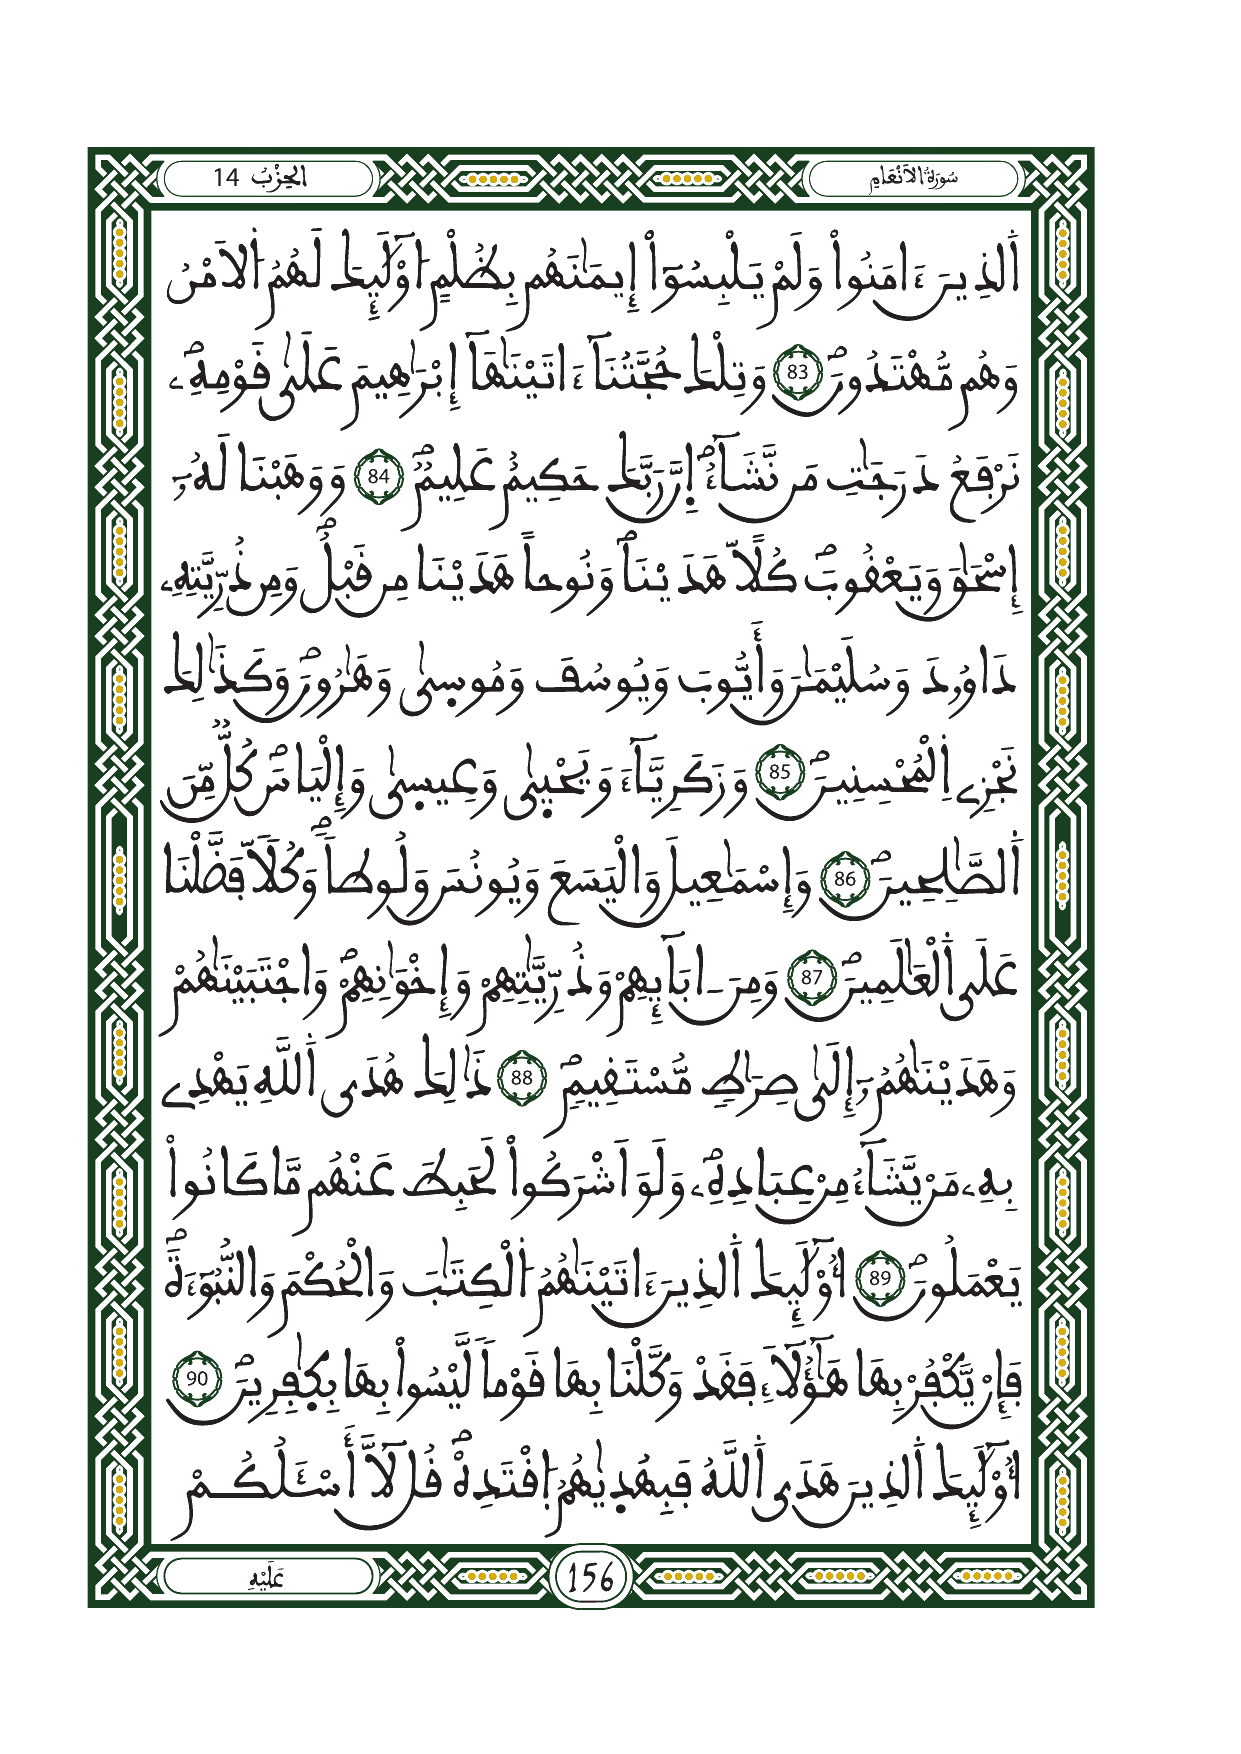 سُورَةُ الَانْعَامِ
الحِزْبُ 14
اَ۬لذِينَ ءَامَنُواْ وَلَمْ يَلْبِسُوٓاْ إِيمَٰنَهُم بِظُلْمٍ ا۟وْلَٰٓئِكَ لَهُمُ اُ۬لَامْنُ
وَهُم مُّهْتَدُونَۖ 83 وَتِلْكَ حُجَّتُنَآ ءَاتَيْنَٰهَآ إِبْرَٰهِيمَ عَلَىٰ قَوْمِهِۦۖ
نَرْفَعُ دَرَجَٰتِ مَن نَّشَآءُۖ اِنَّ رَبَّكَ حَكِيمٌ عَلِيمٌۖ 84 وَوَهَبْنَا لَهُۥٓ
إِسْحَٰقَ وَيَعْقُوبَۖ كُلّاً هَدَيْنَاۖ وَنُوحاً هَدَيْنَا مِن قَبْلُۖ وَمِن ذُرِّيَّتِهِۦ
دَاوُۥدَ وَسُلَيْمَٰنَ وَأَيُّوبَ وَيُوسُفَ وَمُوسىٰ وَهَٰرُونَۖ وَكَذَٰلِكَ
نَجْزِے اِ۬لْمُحْسِنِينَۖ 85 وَزَكَرِيَّآءَ وَيَحْيىٰ وَعِيسىٰ وَإِلْيَاسَۖ كُلّٞ مِّنَ
اَ۬لصَّٰلِحِينَۖ 86 وَإِسْمَٰعِيلَ وَالْيَسَعَ وَيُونُسَ وَلُوطاٗۖ وَكُلّاٗ فَضَّلْنَا
عَلَى اَ۬لْعَٰلَمِينَۖ 87 وَمِنَ ـ ابَآئِهِمْ وَذُرِّيَّٰتِهِمْ وَإِخْوَٰنِهِمْۖ وَاجْتَبَيْنَٰهُمْ
وَهَدَيْنَٰهُمُۥٓ إِلَىٰ صِرَٰطٖ مُّسْتَقِيمٖۖ 88 ذَٰلِكَ هُدَى اَ۬للَّهِ يَهْدِے
بِهِۦ مَنْ يَّشَآءُ مِنْ عِبَادِهِۦۖ وَلَوَ اَشْرَكُواْ لَحَبِطَ عَنْهُم مَّا كَانُواْ
يَعْمَلُونَۖ 89 أُوْلَٰٓئِكَ اَ۬لذِينَ ءَاتَيْنَٰهُمُ اُ۬لْكِتَٰبَ وَالْحُكْمَ وَالنُّبُوٓءَةَۖ
فَإِنْ يَّكْفُرْ بِهَا هَٰٓؤُلَآءِ فَقَدْ وَكَّلْنَا بِهَا قَوْماٗ لَّيْسُواْ بِهَا بِكٰفِرِينَۖ 90
أُوْلَٰٓئِكَ اَ۬لذِينَ هَدَى اَ۬للَّهُ فَبِهُد۪ىٰهُمُ اُ۪قْتَدِهْۖ قُل لَّآ أَسْـَٔلُكُمْ
عَلَيْهِ
156